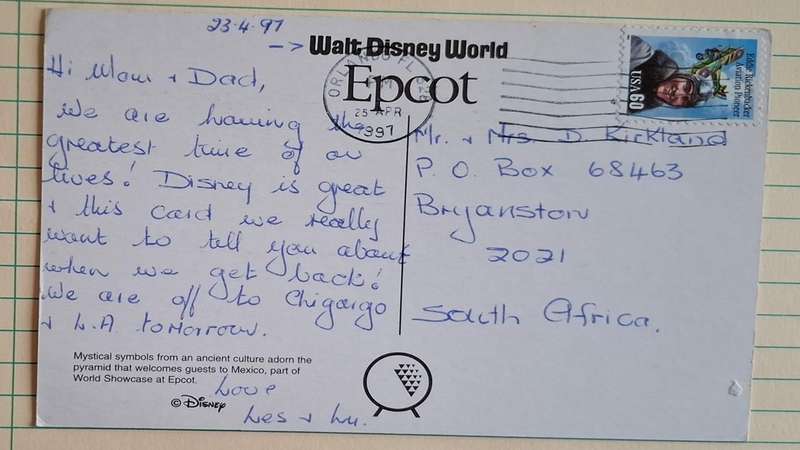 23-4-97
→ Walt Disney World
Epcot
ORLANDO FL 328
PM
25 APR
1997
Eddie Rickenbacker
Aviation Pioneer
USA 60
Hi Mom + Dad,
We are having the
greatest time of ou
lives! Disney is great
+ this card we really
want to tell you about
when we get back!
We are off to Chigargo
+ L.A. tomorrow.
Love
Les + Lu.
Mr. + Mrs. D. Kirkland
P. O. Box 68463
Bryanston
2021
South Africa.
Mystical symbols from an ancient culture adorn the
pyramid that welcomes guests to Mexico, part of
World Showcase at Epcot.
© Disney